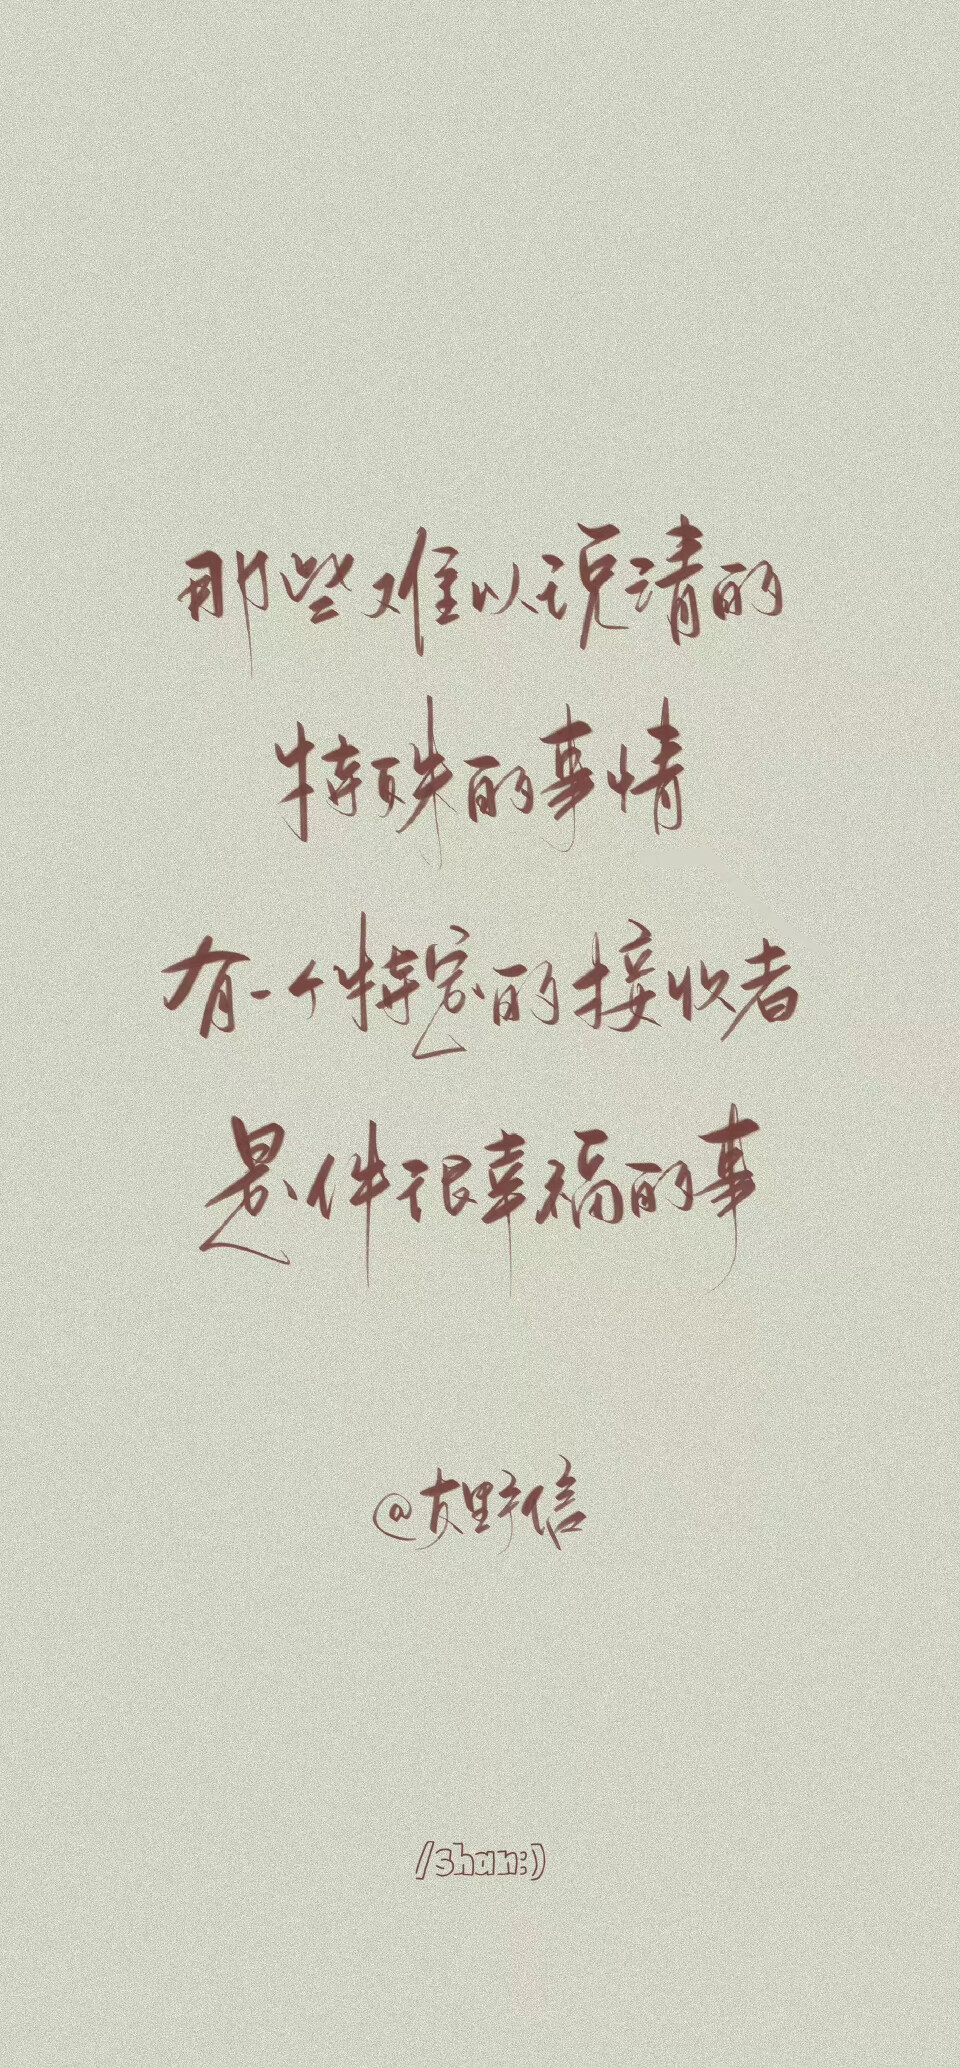 那些难以说清的
特殊的事情
有一个特定的接收者
是件很幸福的事
@友野信
/shan:)